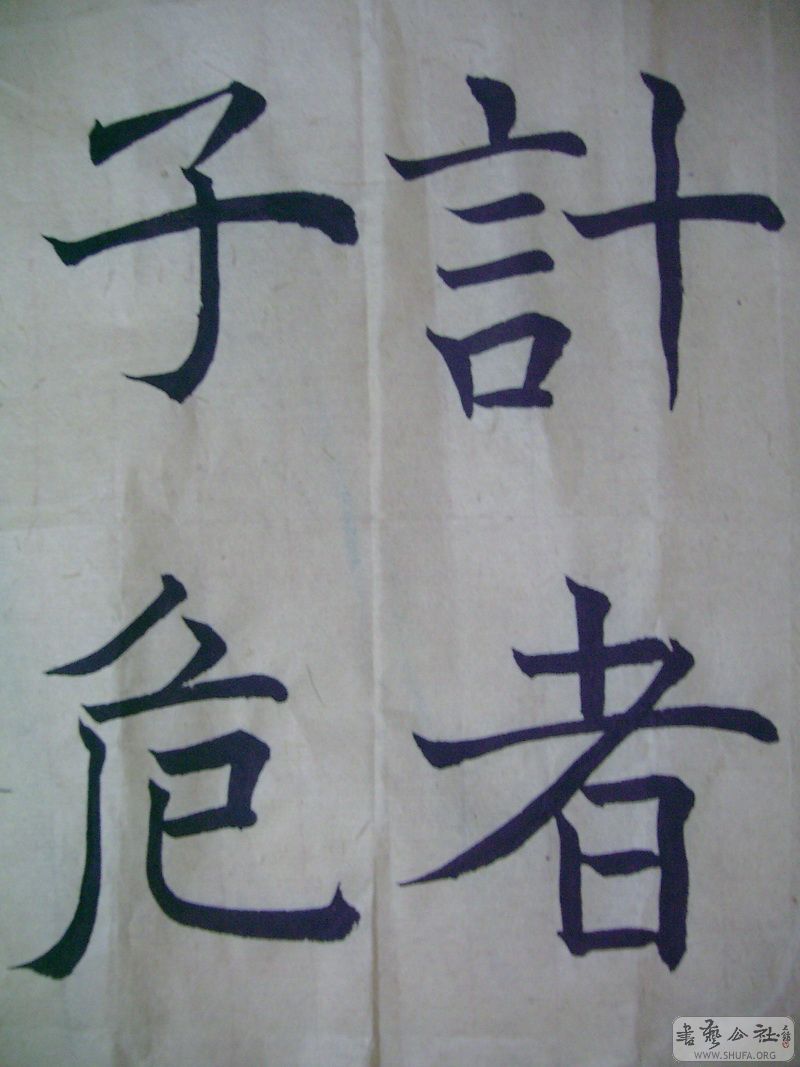 計者
子危
書藝公社
WWW.SHUFA.ORG